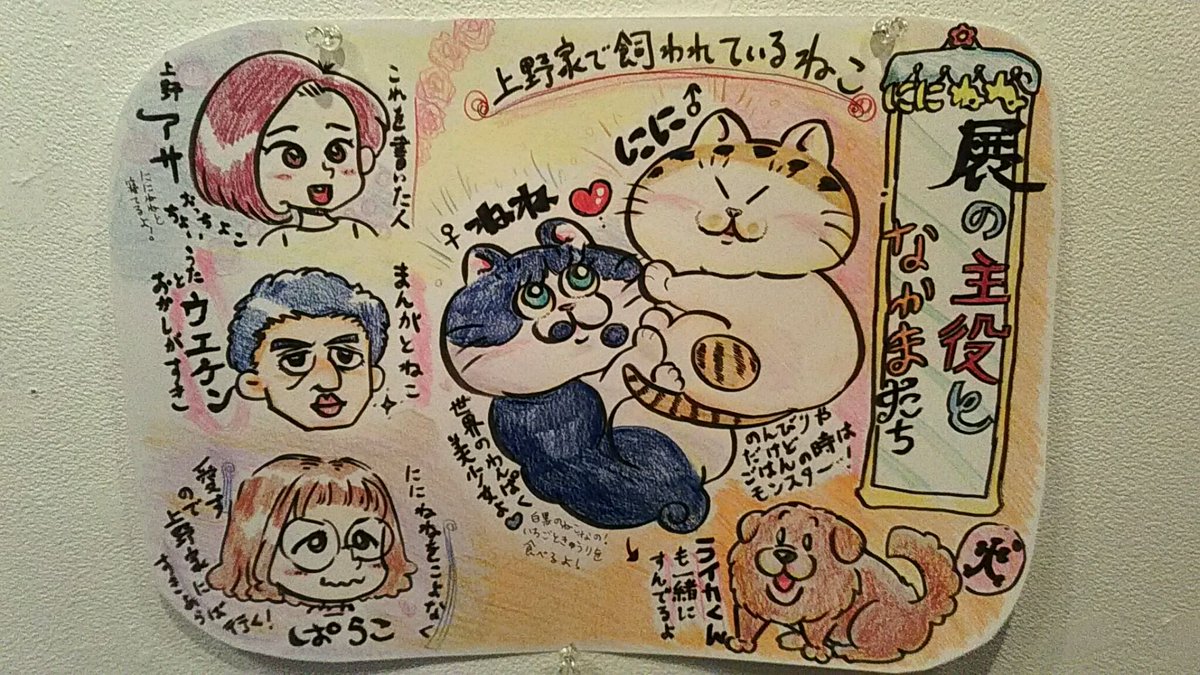 ににねね
展の主役と
なかまたち
上野家で飼われているねこ
にに♂
♀ねね
のんびりや
だけど
ごはんの時は
モンスター…!
世界のわんぱく
美少女よ
白黒のねこなの!
いちごときゅうりを
食べるよ!
ライカくん
も一緒に
すんでるよ
犬
これを書いた人
上野アサ
おっちょこ
ちょい
ににねねと
寝てるよ。
まんがとねこ
とうた
ウエケン
おかしがすき
ににねねをこよなく
愛す
ので上野家には
行く!
ぱらこ